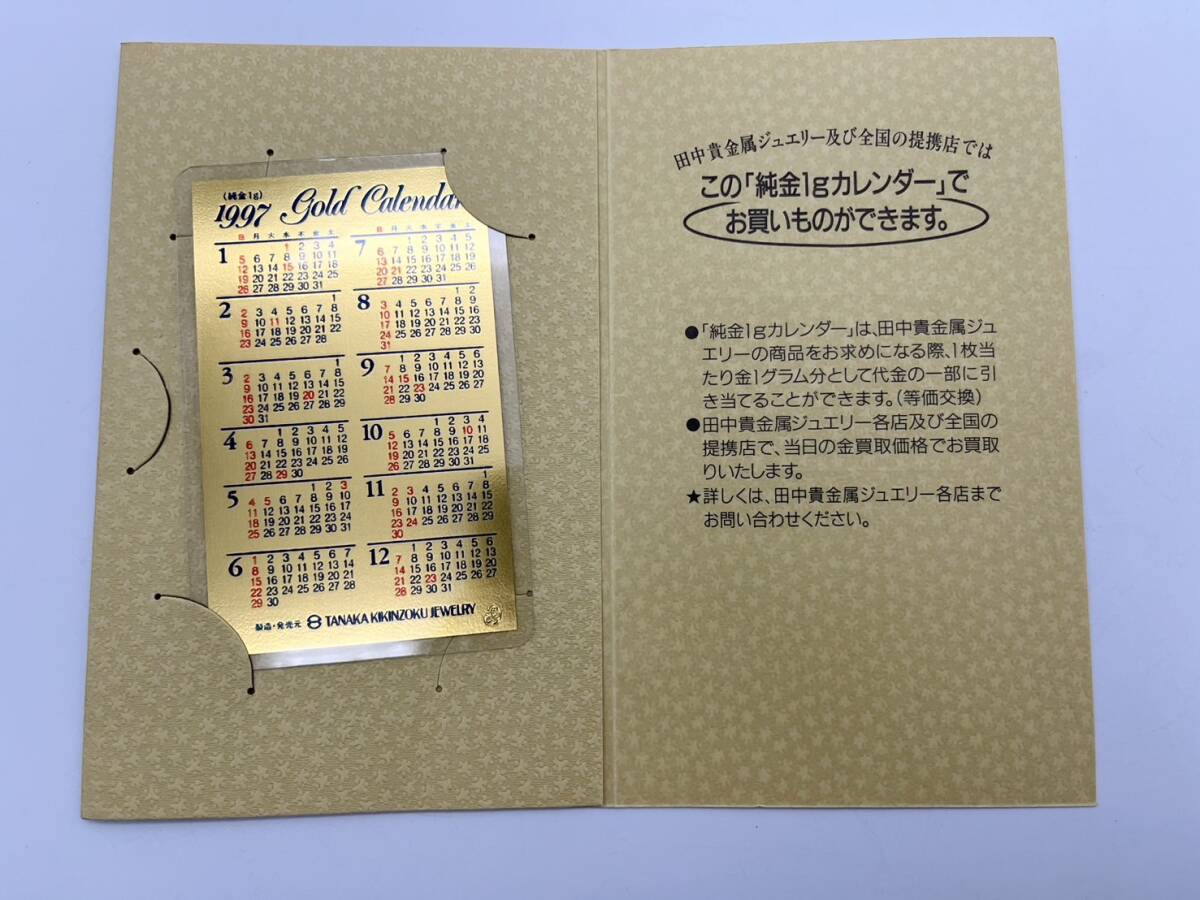 (純金1g)
1997 Gold Calendar
日 月 火 水 木 金 土
1
1 2 3 4
5 6 7 8 9 10 11
12 13 14 15 16 17 18
19 20 21 22 23 24 25
26 27 28 29 30 31
2
1
2 3 4 5 6 7 8
9 10 11 12 13 14 15
16 17 18 19 20 21 22
23 24 25 26 27 28
3
1
2 3 4 5 6 7 8
9 10 11 12 13 14 15
16 17 18 19 20 21 22
23 24 25 26 27 28 29
30 31
4
1 2 3 4 5
6 7 8 9 10 11 12
13 14 15 16 17 18 19
20 21 22 23 24 25 26
27 28 29 30
5
1 2 3
4 5 6 7 8 9 10
11 12 13 14 15 16 17
18 19 20 21 22 23 24
25 26 27 28 29 30 31
6
1 2 3 4 5 6 7
8 9 10 11 12 13 14
15 16 17 18 19 20 21
22 23 24 25 26 27 28
29 30
日 月 火 水 木 金 土
7
1 2 3 4 5
6 7 8 9 10 11 12
13 14 15 16 17 18 19
20 21 22 23 24 25 26
27 28 29 30 31
8
1 2
3 4 5 6 7 8 9
10 11 12 13 14 15 16
17 18 19 20 21 22 23
24 25 26 27 28 29 30
31
9
1 2 3 4 5 6
7 8 9 10 11 12 13
14 15 16 17 18 19 20
21 22 23 24 25 26 27
28 29 30
10
1 2 3 4
5 6 7 8 9 10 11
12 13 14 15 16 17 18
19 20 21 22 23 24 25
26 27 28 29 30 31
11
1
2 3 4 5 6 7 8
9 10 11 12 13 14 15
16 17 18 19 20 21 22
23 24 25 26 27 28 29
30
12
1 2 3 4 5 6
7 8 9 10 11 12 13
14 15 16 17 18 19 20
21 22 23 24 25 26 27
28 29 30 31
製造・発売元 TANAKA KIKINZOKU JEWELRY
田中貴金属ジュエリー及び全国の提携店では
この「純金1gカレンダー」で
お買いものができます。
●「純金1gカレンダー」は、田中貴金属ジュ
エリーの商品をお求めになる際、1枚当
たり金1グラム分として代金の一部に引
き当てることができます。(等価交換)
●田中貴金属ジュエリー各店及び全国の
提携店で、当日の金買取価格でお買取
りいたします。
★詳しくは、田中貴金属ジュエリー各店まで
お問い合わせください。